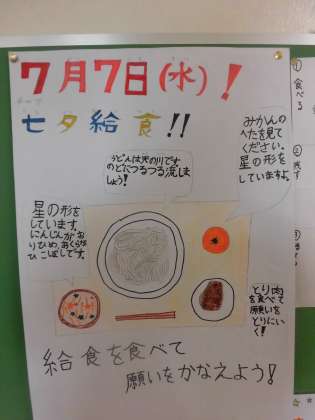 7月7日(水)!
七夕給食!!
うどんは天の川です。
のどにつるつる流しま
しょう!
みかんの
へたを見て
ください。
星の形を
していますよ。
星の形を
しています。
にんじんがお
りひめ、おくらが
ひこぼしです。
とり肉
を食べて
願いを
とりにい
く!
給食を食べて
願いをかなえよう!
①食べる